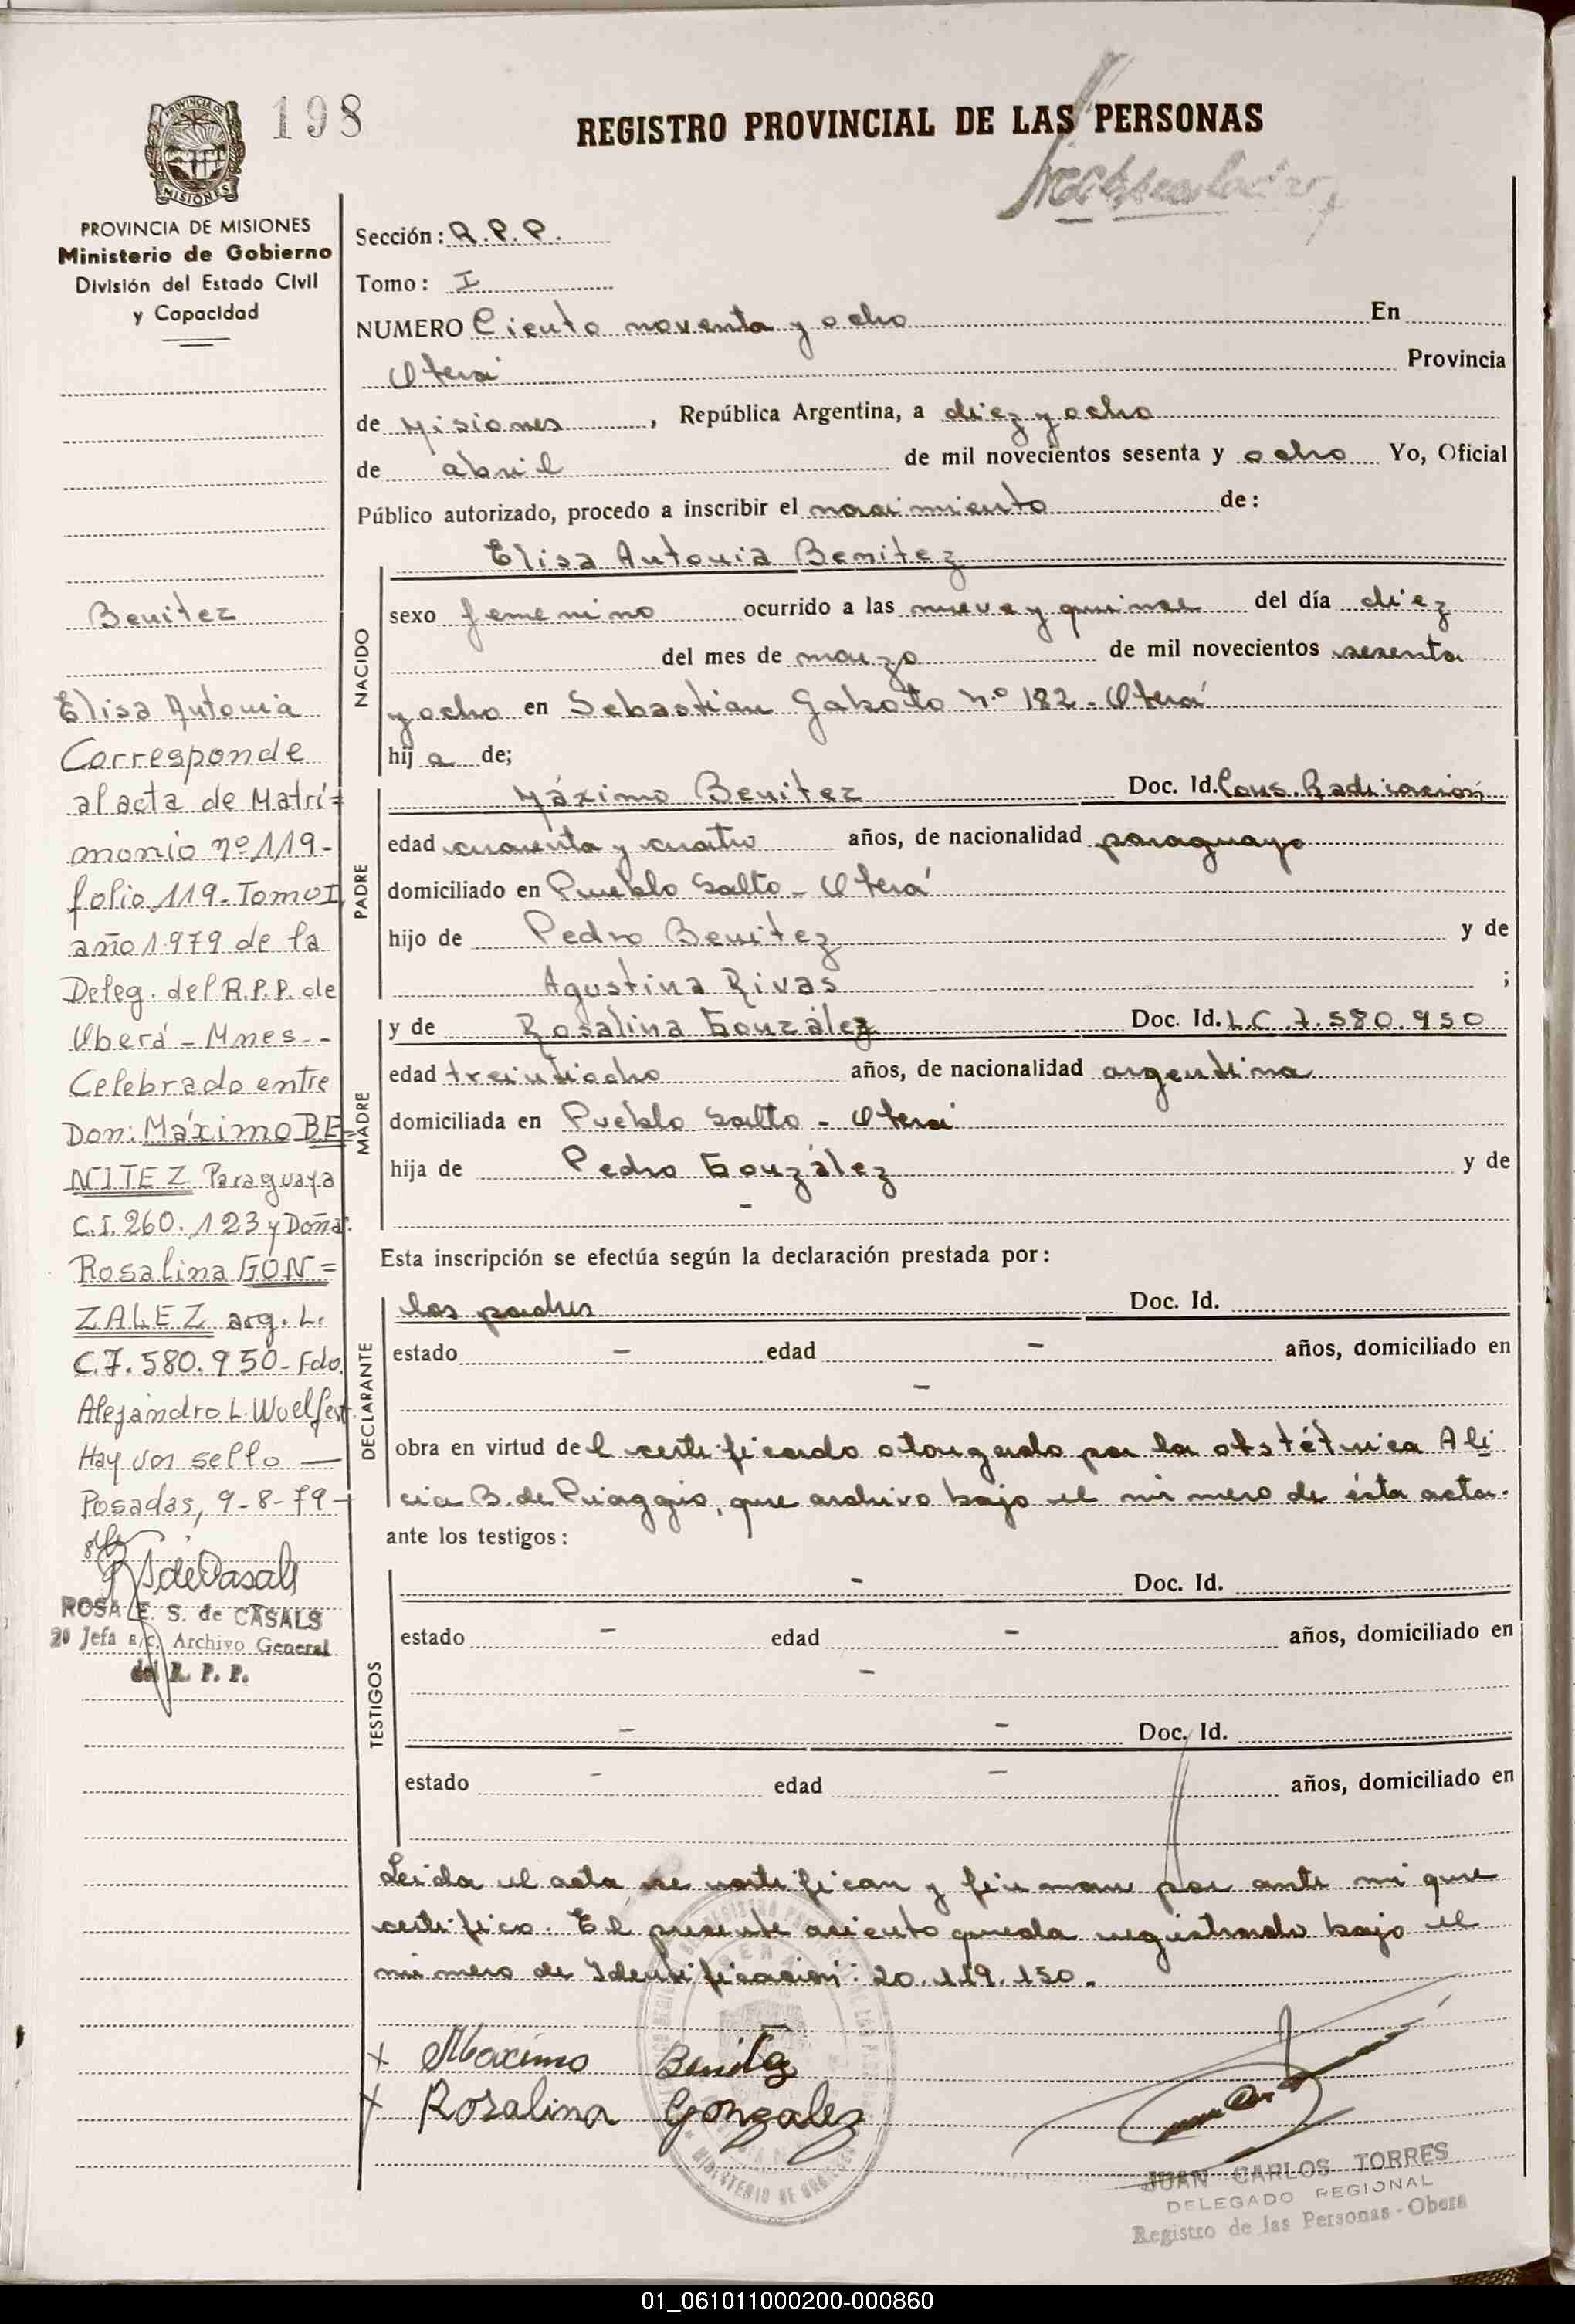 198
REGISTRO PROVINCIAL DE LAS PERSONAS
PROVINCIA DE MISIONES
Ministerio de Gobierno
División del Estado Civil
y Capacidad
Sección: R.P.P.
Tomo: I
NUMERO Ciento noventa y ocho En
Oberá Provincia
de Misiones, República Argentina, a diez y ocho
de abril de mil novecientos sesenta y ocho Yo, Oficial
Público autorizado, procedo a inscribir el nacimiento de:
Elisa Antonia Benitez
NACIDO
sexo femenino ocurrido a las nueve y quince del día diez
del mes de marzo de mil novecientos sesenta
y ocho en Sebastian Gaboto N.º 182 - Oberá
hij a de;
PADRE
Máximo Benitez Doc. Id. Cons. Radicación
edad cuarenta y cuatro años, de nacionalidad paraguayo
domiciliado en Pueblo Salto - Oberá
hijo de Pedro Benitez y de
Agustina Rivas ;
MADRE
y de Rosalina González Doc. Id. L.C. 7.580.950
edad treintiocho años, de nacionalidad argentina
domiciliada en Pueblo Salto - Oberá
hija de Pedro González y de
-
Esta inscripción se efectúa según la declaración prestada por:
DECLARANTE
los padres Doc. Id.
estado - edad - años, domiciliado en
-
obra en virtud del certificado otorgado por la obstétrica Ali
cia B. de Piaggio, que archivo bajo el número de ésta acta.
ante los testigos:
TESTIGOS
- Doc. Id.
estado - edad - años, domiciliado en
-
- - Doc. Id.
estado - edad - años, domiciliado en
Leída el acta se ratifican y firman por ante mi que
certifico. El presente asiento queda registrado bajo el
número de Identificación: 20.119.150.
x Maximo Benitez
x Rosalina Gonzalez
JUAN CARLOS TORRES
DELEGADO REGIONAL
Registro de las Personas - Obera
Benitez
Elisa Antonia
Corresponde
al acta de Matri=
monio nº 119-
folio 119-Tomo I
año 1979 de la
Deleg. del R.P.P. de
Oberá - Mnes.-
Celebrado entre
Don: Máximo BE=
NITEZ Paraguaya
C.I. 260.123 y Doña:
Rosalina GON=
ZALEZ arg. L.
C. 7.580.950- Fdo.
Alejandro L.
Hay un sello —
Posadas, 9-8-79-
ROSA E. S. de CASALS
2º Jefa a/c. Archivo General
del R. P. P.
01_061011000200-000860